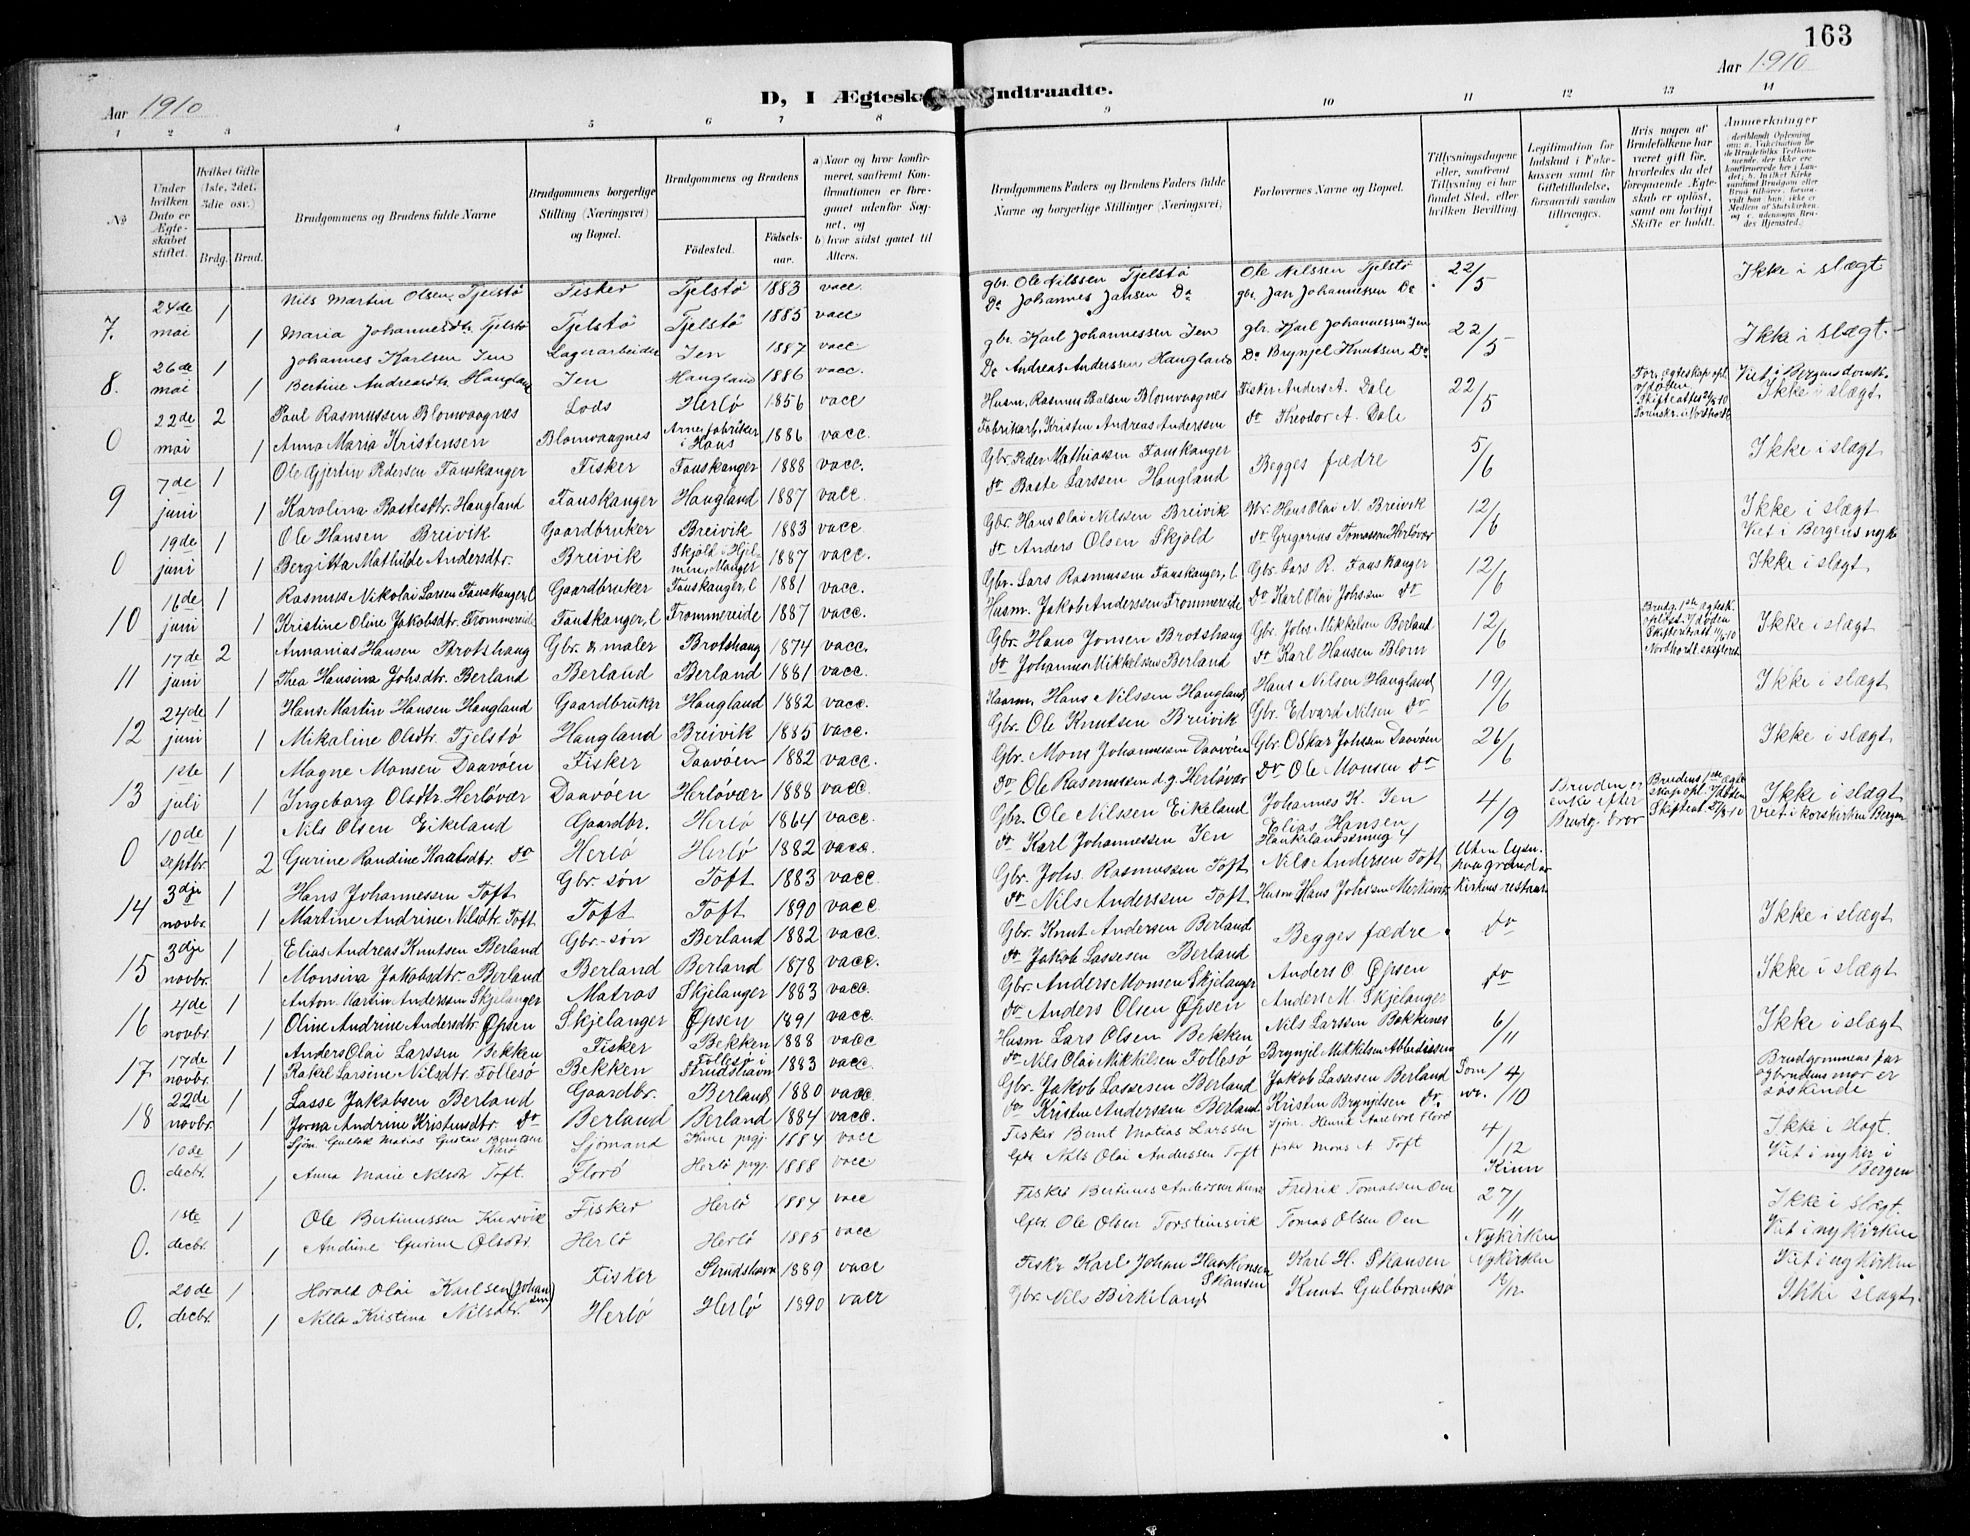 163
Aar 1910
Aar 1910
D, I Ægtesk ndtraadte.
1 2 3 4 5 6 7 8 9 10 11 12 13 14
No
Under hvilken Dato er Ægteskabet stiftet.
Hvilket Gifte (1ste, 2det, 3die osv.)
Brdg. Brud.
Brudgommens og Brudens fulde Navne
Brudgommens borgerlige Stilling (Næringsvei) og Bopæl.
Brudgommens og Brudens
Fødested. Fødselsaar.
a) Naar og hvor konfirmeret, saafremt Konfirmationen er foregaaet udenfor Sognet, og
b) hvor sidst gaaet til Alters.
Brudgommens Faders og Brudens Faders fulde Navne og borgerlige Stillinger (Næringsvei)
Forlovernes Navne og Bopæl.
Tillysningsdagene eller, saafremt Tillysning ei har fundet Sted, efter hvilken Bevilling.
Legitimation for Indskud i Enkekassen samt for Giftetilladelse, forsaavidt saadan tiltrænges.
Hvis nogen af Brudefolkene har været gift før, hvorledes da det foregaaende Ægteskab er opløst, samt om lovligt Skifte er holdt.
Anmærkninger
7. 24de mai 1 Nils Martin Olsen Tjelstø Fisker Tjelstø 1883 vacc. gbr. Ole Nilssen Tjelstø Ole Nilssen Tjelstø 22/5 Ikke i slægt
1 Maria Johannesdtr. Tjelstø Tjelstø Tjelstø 1885 vacc Do Johannes Jansen Do gbr. Jan Johannessen Do
8. 26de mai 1 Johannes Karlsen Jen Lagerarbeider Jen 1887 vacc. gbr. Karl Johannessen Jen gbr. Karl Johannessen Jen 22/5 Ikke i slægt.
1 Bertine Andreasdtr. Haugland Jen Haugland 1886 vacc. Do Andreas Anderssen Haugland Do Brynjel Knutsen Do
0 22de mai 2 Paul Rasmussen Blomvaagnes Lods Herlø 1856 vacc Husm. Rasmus Balsen Blomvaagnes Fisker Anders A. Dale 22/5 Viet i Bergens domk. Ikke i slægt
1 Anna Maria Kristensen Blomvaagnes Arne fabriker i Haus 1886 vacc. Fabrikarb. Kristen Andreas Anderssen do Theodor A. Dale
9 7de juni 1 Ole Gjertin Pedersen Fauskanger Fisker Fauskanger 1888 vacc. Gbr. Peder Mathiassen Fauskanger Begges fædre 5/6 Ikke i slægt
1 Karolina Bastesdtr. Haugland Fauskanger Haugland 1887 vacc. do Baste Larssen Haugland
0 19de juni 1 Ole Hansen Breivik Gaardbruker Breivik 1883 vacc. Gbr. Hans Olai Nilssen Breivik Hans Olai N. Breivik 12/6 Ikke i slægt
1 Bergitta Mathilde Andersdtr. Breivik Skjold i Hjelmen, Manger 1887 vacc. do Anders Olsen Skjold do Grigorius Tomassen Herløvær Viet i Bergens nyk.
10 16de juni 1 Rasmus Nikolai Larsen Fauskanger, l Gaardbruker Fauskanger, l 1881 vacc. Gbr. Lars Rasmussen Fauskanger, l. Gbr. Lars R. Fauskanger 12/6 Ikke i slægt
1 Kristine Oline Jakobsdtr. Frommereide Fauskanger, l Frommereide 1887 vacc. Husm. Jakob Anderssen Frommereide do Karl Olai Johssen do
11 17de juni 2 Annanias Hansen Brotshaug Gbr. & maler Brotshaug 1874 vacc. Gbr. Hans Jonsen Brotshaug Gbr. Johs. Mikkelsen Berland 12/6 Brudg. 1ste ægtesk. opløst v/ døden Ikke i slægt
1 Thea Hansina Johsdtr. Berland Berland Berland 1881 vacc. do Johannes Mikkelsen Berland do Karl Hansen Blom
12 24de juni 1 Hans Martin Hansen Haugland Gaardbruker Haugland 1882 vacc. Hans Nilssen Haugland Hans Nilsen Haugland 19/6 Ikke i slægt
1 Mikaline Olsdtr. Tjelstø Haugland Breivik 1885 vacc. Gbr. Ole Knutsen Breivik Gbr. Edvard Nilsen do
13 1ste juli 1 Magne Monsen Daavøen Fisker Daavøen 1882 vacc. Gbr. Mons Johannessen Daavøen Gbr. Oskar Johssen Daavøen 26/6 Ikke i slægt
1 Ingeborg Olsdtr. Herløvær Daavøen Herløvær 1888 vacc. do Ole Rasmussen d.y. Herløvær do Ole Monsen do
0 10de septbr. 1 Nils Olsen Eikeland Gaardbr. Herlø 1864 vacc. Gbr. Ole Nilssen Eikeland Johannes K. Jen 4/9 Bruden er enke efter Brudg. bror Brudens 1ste ægteskap opl. v/ døden Ikke i slægt
2 Gurine Randine Karlsdtr. do Herlø Herlø 1882 vacc. do Karl Johannessen Jen Elias Hansen Viet i korskirken Bergen
14 3dje novbr. 1 Hans Johannessen Toft Gbr. søn Toft 1883 vacc Gbr. Johs. Rasmussen Toft Nils Andersen Toft Uten lysn. paa grund av kirkens restaur.
1 Martine Andrine Nilsdtr. Toft Toft Toft 1890 vacc. do Nils Anderssen Toft Husm Hans Johssen Ikke i slægt
15 3dje novbr. 1 Elias Andreas Knutsen Berland Gbr. søn Berland 1882 vacc. Gbr. Knut Andersen Berland Begges fædre. do
1 Monsina Jakobsdtr. Berland Berland Berland 1878 vacc. do Jakob Lassesen Berland Ikke i slægt
16 4de novbr. 1 Anton Martin Anderssen Skjelanger Matros Skjelanger 1883 vacc. Gbr. Anders Monsen Skjelanger Anders O Øpsen do
1 Oline Andrine Andersdtr. Øpsen Skjelanger Øpsen 1891 vacc. do Anders Olsen Øpsen Anders M. Skjelanger Ikke i slægt
17 17de novbr. 1 Anders Olai Larssen Bekken Fisker Bekken 1888 vacc Husm Lars Olsen Bekken Nils Larssen Bakkenes 6/11
1 Rakel Larsine Nilsdtr. Follesø Bekken Follesø i Strudshavn 1883 vacc. do Nils Olai Mikkelsen Follesø Brynjel Mikkelsen
18 22de novbr. 1 Lasse Jakobsen Berland Gaardbr. Berland 1880 vacc. Gbr. Jakob Lassesen Berland Jakob Lassesen Berland Som nr. 14/10 Brudgommens far og brudens mor er søskende
1 Jorna Andrine Kristensdtr. do Berland Berland 1884 vacc. do Kristen Anderssen Berland Kristen Brynjelsen do.
0. 10de decbr. 1 Sjøm. Gullak Matias Gustav Berntsen Sjömand Kinn prgj. 1884 vacc Fisker Bernt Matias Larssen 4/12 Kinn Ikke i slægt.
1 Anna Marie Nilsdtr Toft. Florö Herlö prgj. 1888 vacc Gbr. Nils Olai Anderssen Toft fisker Mons A Toft Viet i nykir. i Bergen
0. 1ste decbr. 1 Ole Bertinussen Fisker Herlö 1884 vacc Fisker Bertinus Andersen Fredrik Tomassen Oen 27/11 Nykirken Ikke i slægt.
1 Andrine Gurine Olsdtr Herlö Herlö 1885 vacc Gbr. Ole Olsen Torsteinsvik Tomas Olsen Oen Viet i nykirken
0. 20de decbr. 1 Harald Olai Karlsen (Johansen) Fisker Strudshavn 1889 vacc Fiskr Karl Johan Haakonsen Skansen Karl H. Skansen Nykirken Viet i nykirken
1 Nilla Kristina Nilsdtr. Herlö Herlö 1890 vacc Gbr. Nils Birkeland Knut Gulbransö Ikke i slægt.